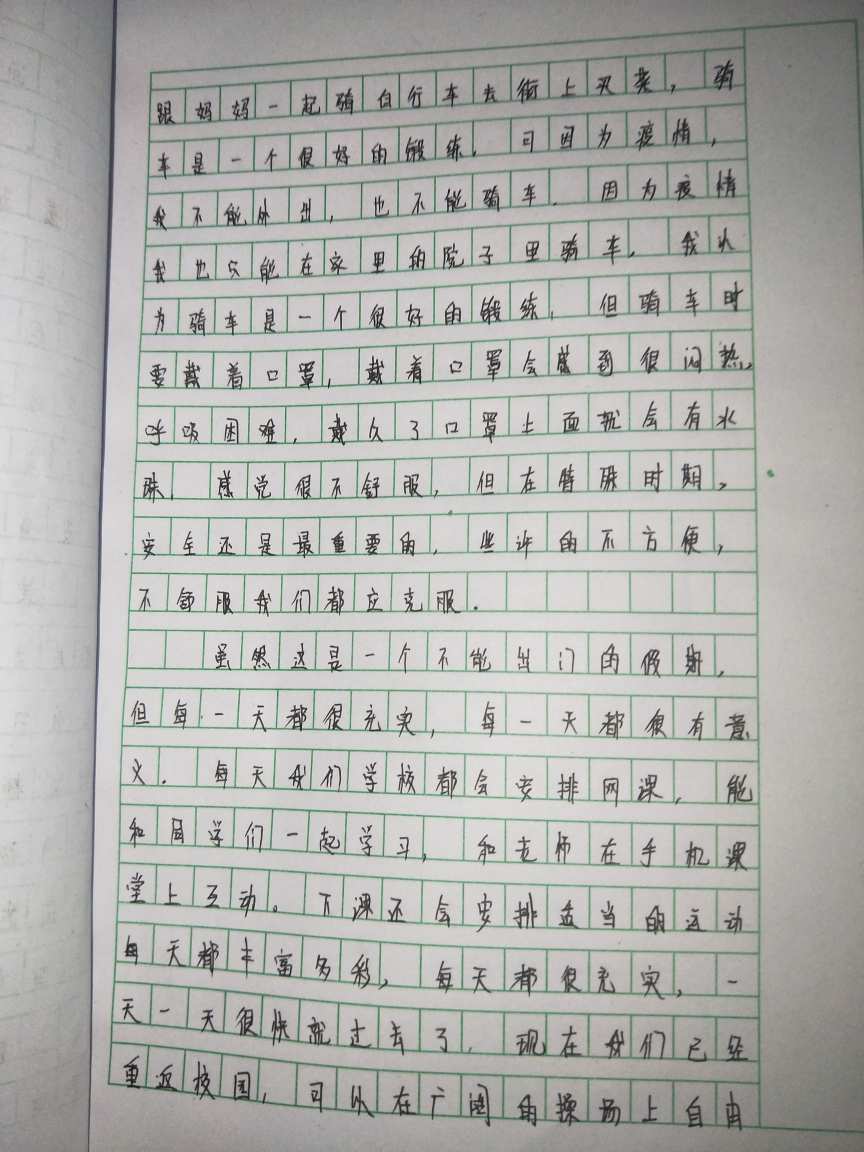 跟妈妈一起骑自行车去街上买菜，骑
车是一个很好的锻练，可因为疫情，
我不能外出，也不能骑车．因为疫情
我也只能在家里的院子里骑车．我认
为骑车是一个很好的锻练，但骑车时
要戴着口罩，戴着口罩会感到很闷热。
呼吸困难，戴久了口罩上面就会有水
珠，感觉很不舒服，但在特殊时期。
安全还是最重要的，些许的不方便，
不舒服我们都应克服．
虽然这是一个不能出门的假期，
但每一天都很充实，每一天都很有意
义．每天我们学校都会安排网课，能
和同学们一起学习，和老师在手机课
堂上互动。下课还会安排适当的运动
每天都丰富多彩，每天都很充实，一
天一天很快就过去了．现在我们已经
重返校园，可以在广阔的操场上自由